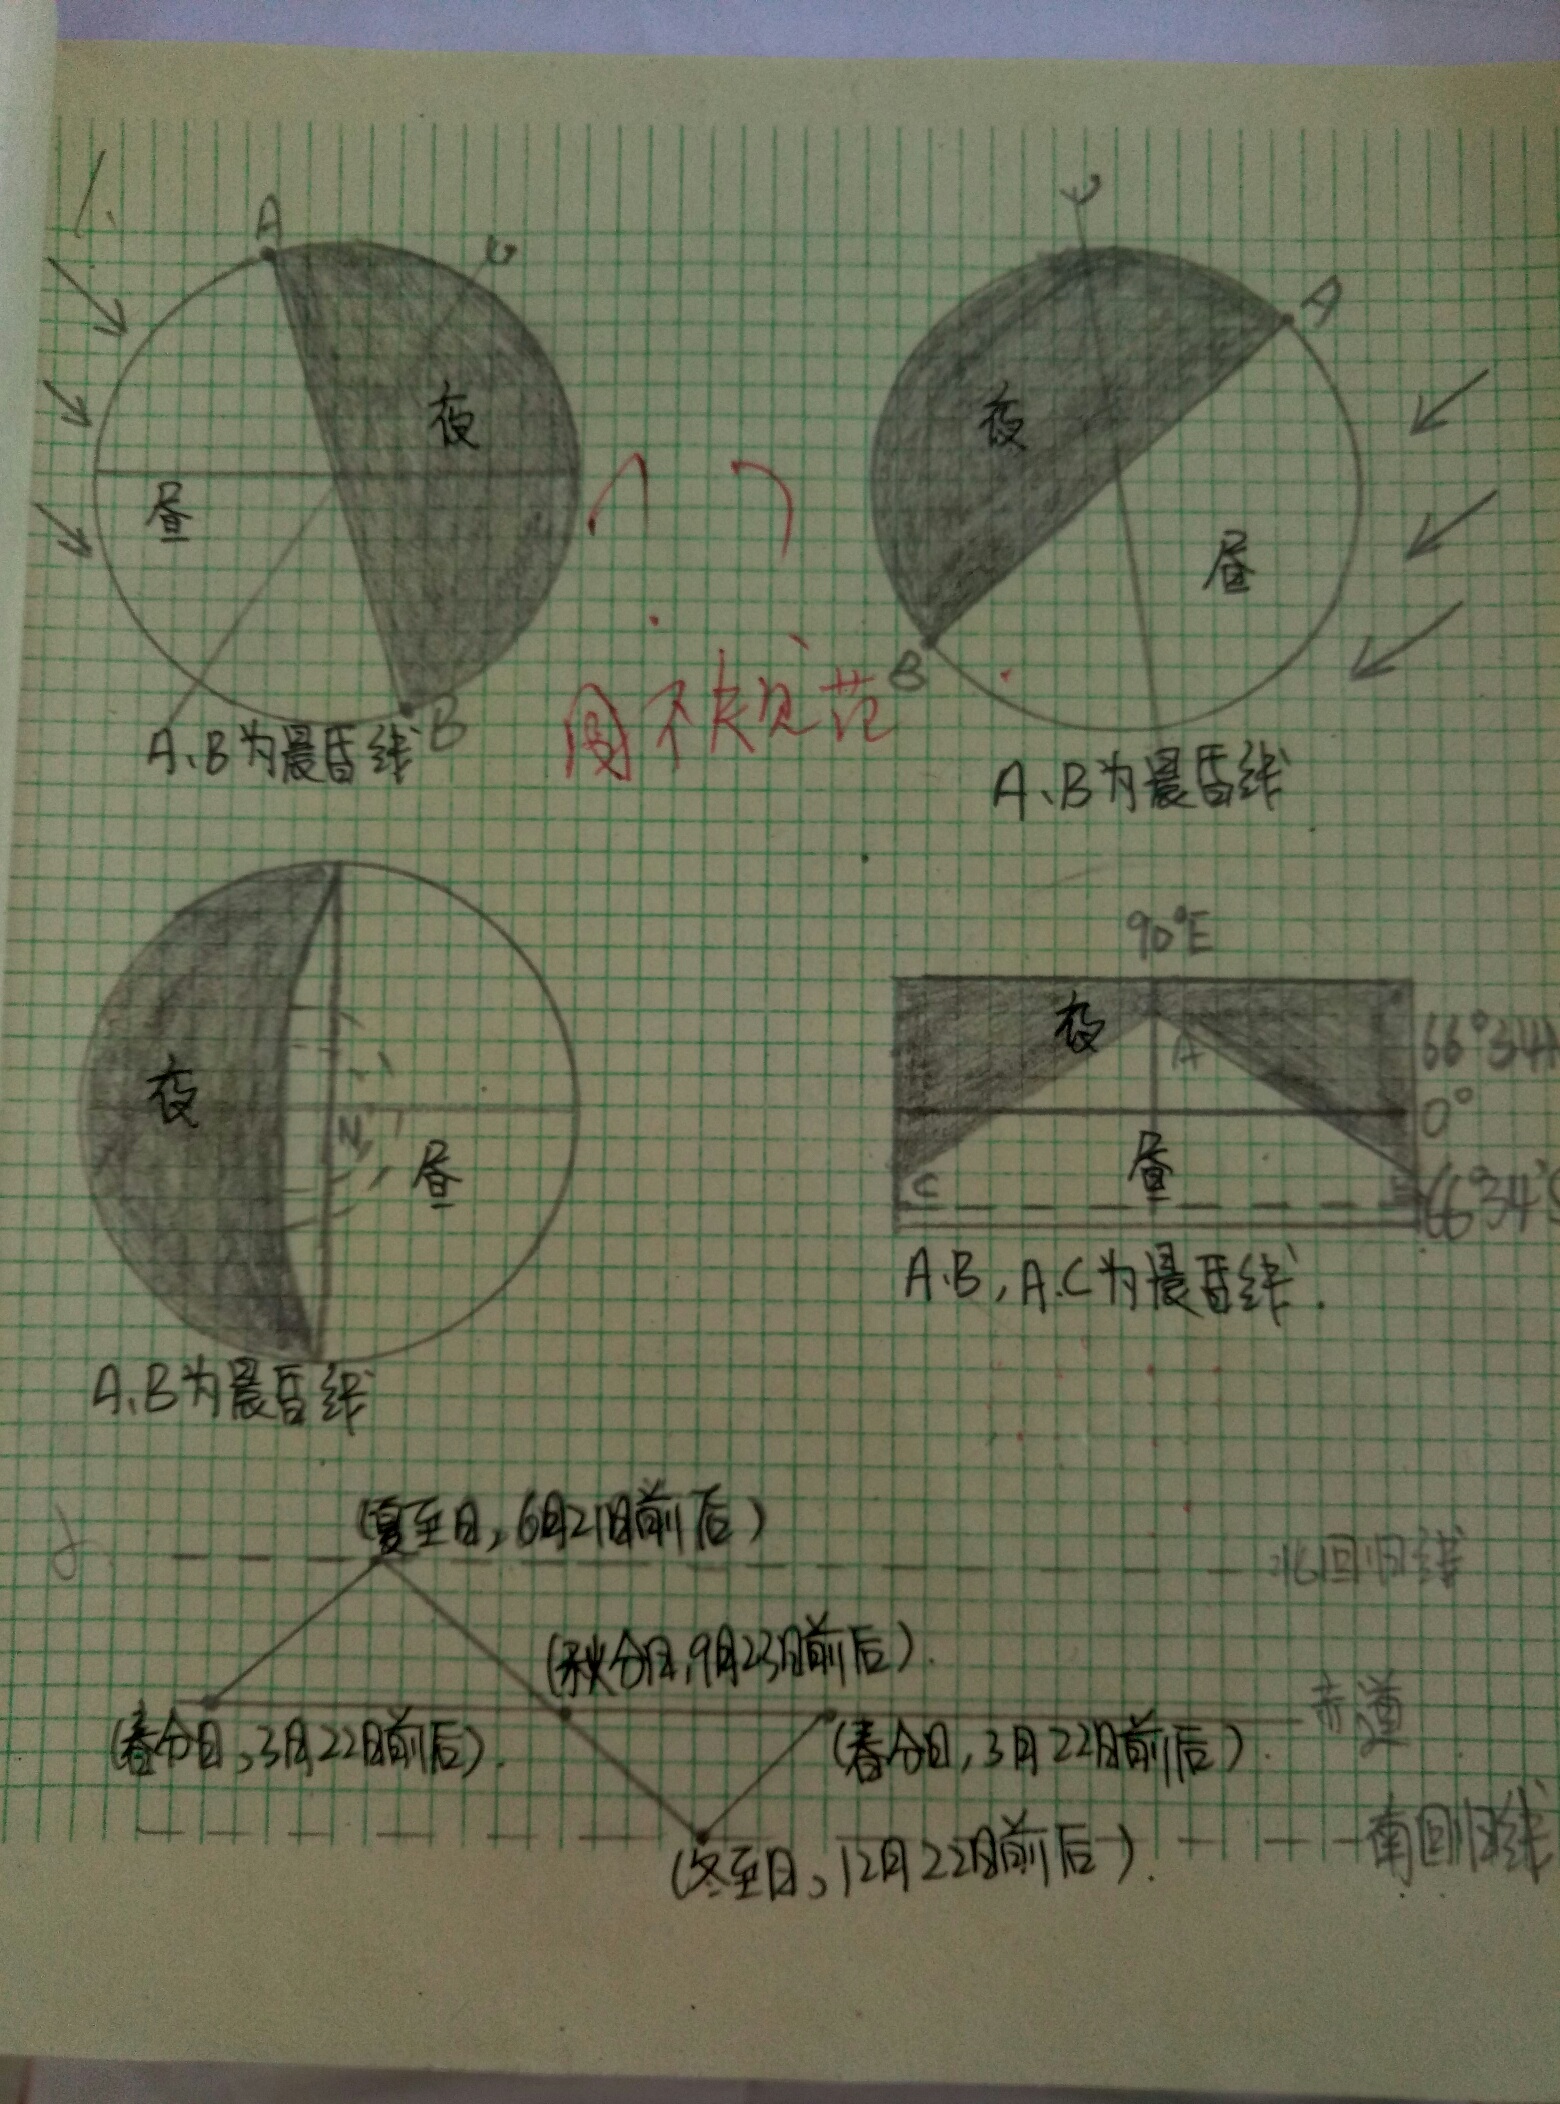 1.
A
夜
昼
B
A、B为晨昏线
A
夜
昼
B
A、B为晨昏线
图不规范
夜
N
昼
A、B为晨昏线
90°E
夜
A
66°34′N
0°
昼
C
B
66°34′S
A.B，A.C为晨昏线.
2.
(夏至日，6月21日前后)
北回归线
(秋分日,9月23日前后).
赤道
(春分日,3月22日前后).
(春分日,3月22日前后).
南回归线
(冬至日，12月22日前后).